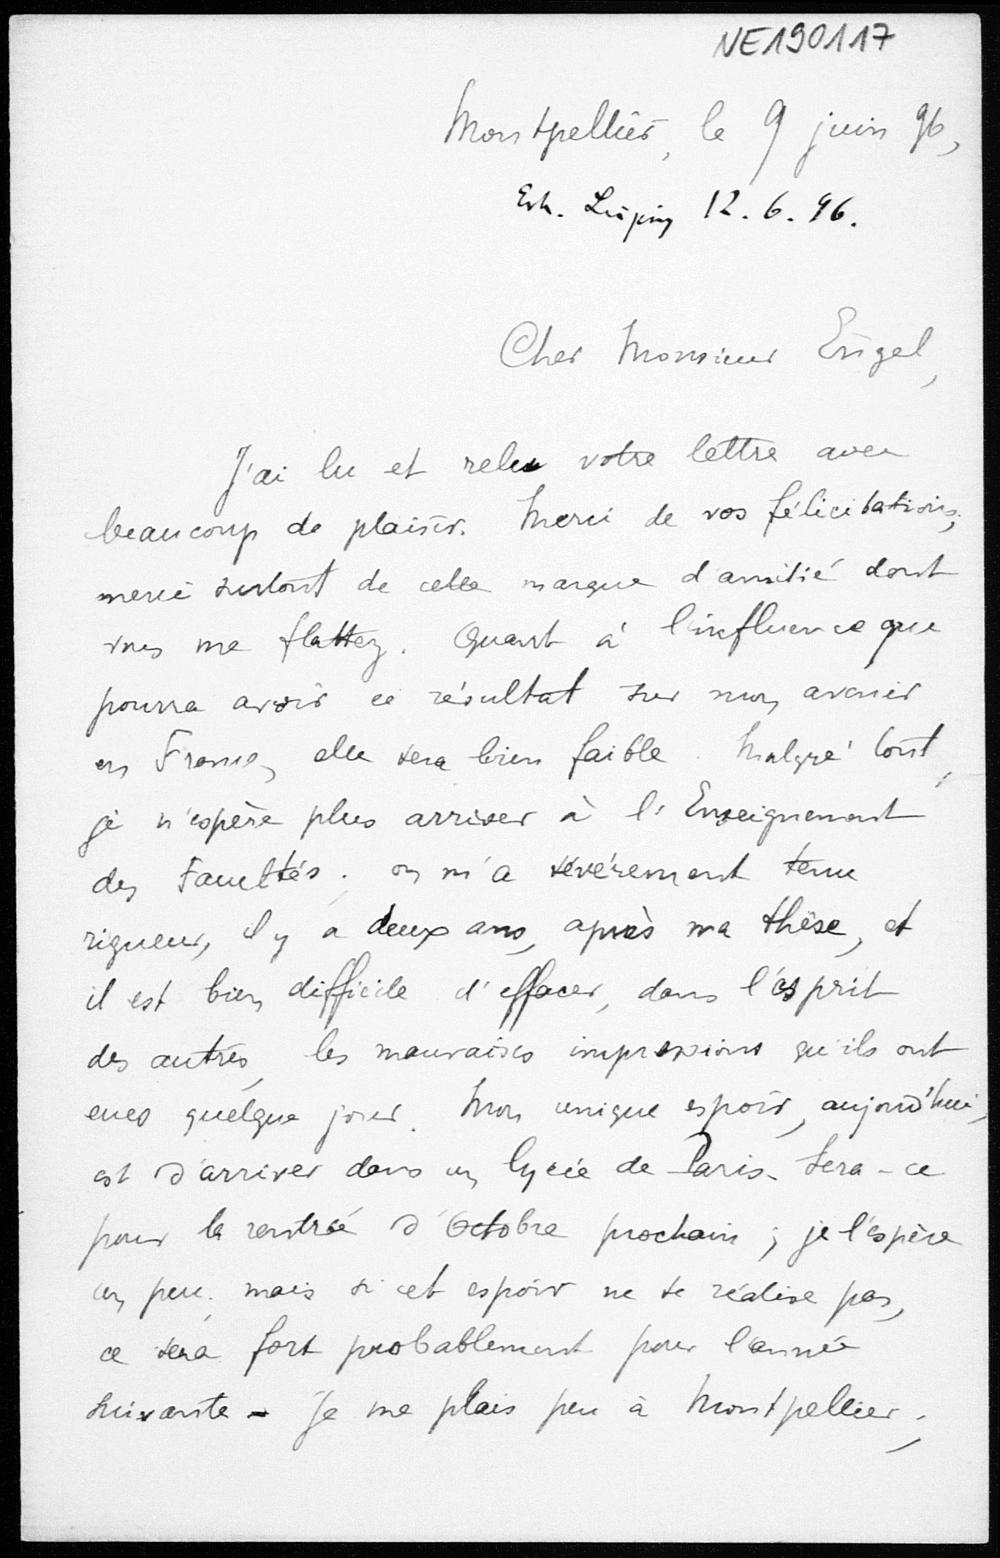 NE190117
Montpellier, le 9 juin 96,
Erh. Leipzig 12.6.96.
Cher Monsieur Engel,
J'ai lu et relu votre lettre avec
beaucoup de plaisir. Merci de vos félicitations,
merci surtout de cette marque d'amitié dont
vous me flattez. Quant à l'influence que
pourra avoir ce résultat sur mon avenir
en France, elle sera bien faible. Malgré tout,
je n'espère plus arriver à l'Enseignement
des Facultés ; on m'a sévèrement tenu
rigueur, il y a deux ans, après ma thèse, et
il est bien difficile d'effacer, dans l'esprit
des autres, les mauvaises impressions qu'ils ont
eues quelque jour. Mon unique espoir, aujourd'hui,
est d'arriver dans un lycée de Paris. Sera-ce
pour la rentrée d'Octobre prochain ; je l'espère
un peu. mais si cet espoir ne se réalise pas,
ce sera fort probablement pour l'année
suivante - Je me plais peu à Montpellier ;